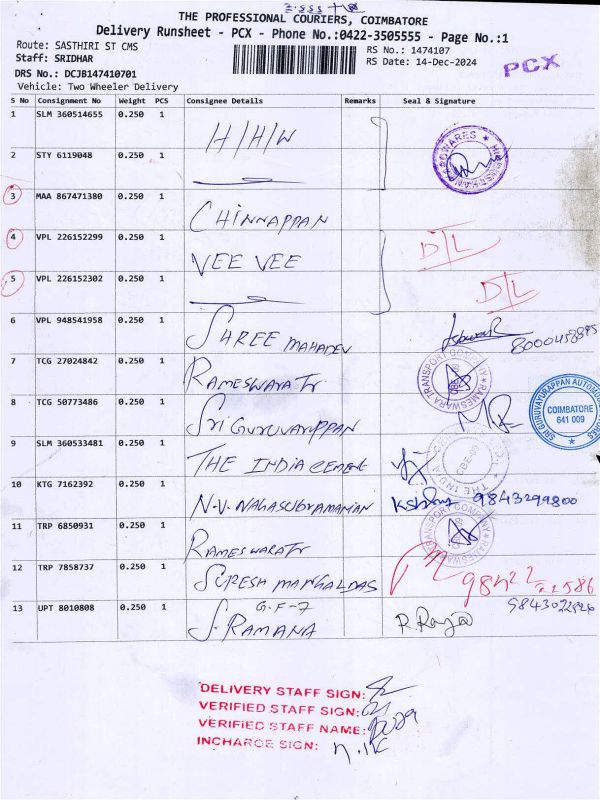 THE PROFESSIONAL COURIERS, COIMBATORE
Delivery Runsheet - PCX - Phone No.:0422-3505555 - Page No.:1
Route: SASTHIRI ST CMS
RS No.: 1474107
Staff: SRIDHAR
RS Date: 14-Dec-2024
PCX
DRS No.: DCJB147410701
Vehicle: Two Wheeler Delivery
S No Consignment No Weight PCS Consignee Details Remarks Seal & Signature
1 SLM 360514655 0.250 1 H/H/W
2 STY 6119048 0.250 1
3 MAA 867471380 0.250 1 CHINNAPPAN
4 VPL 226152299 0.250 1 VEE VEE D/L
5 VPL 226152302 0.250 1 D/L
6 VPL 948541958 0.250 1 SHREE MAHADEV
7 TCG 27024842 0.250 1 RAMESWARA Tr RAMESWARA TRANSPORT COMPANY
8 TCG 50773486 0.250 1 Sri GURUVAYUPPAN SRI GURUVAYURAPPAN COIMBATORE 641 009
9 SLM 360533481 0.250 1 THE INDIA CEMENT
10 KTG 7162392 0.250 1 N.V. NAGASUBRAMANIAN 9843299800
11 TRP 6850931 0.250 1 RAMESWARA Tr RAMESWARA TRANSPORT COMPANY
12 TRP 7858737 0.250 1 SURESH MANGALDAS
13 UPT 8010808 0.250 1 G.F-7 S.RAMANA R.Raja
DELIVERY STAFF SIGN:
VERIFIED STAFF SIGN:
VERIFIED STAFF NAME:
INCHARGE SIGN: